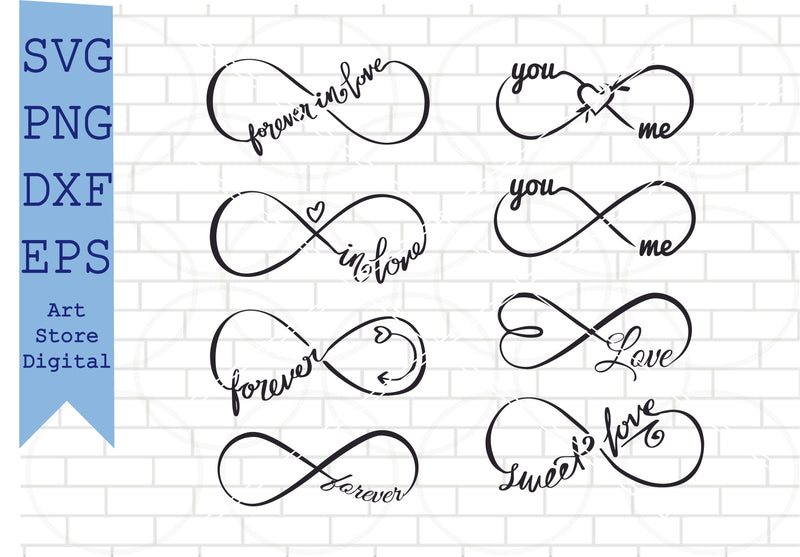 SVG
PNG
DXF
EPS
Art
Store
Digital
forever in love
you
me
in love
you
me
forever
Love
forever
sweet love